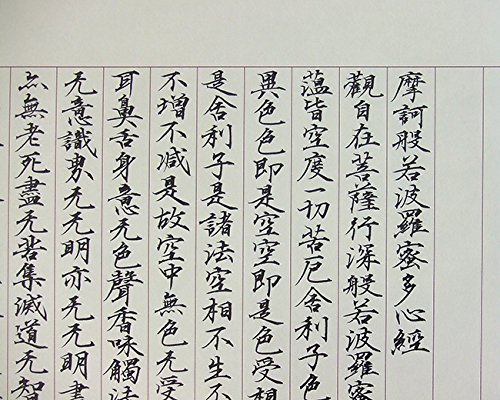 摩訶般若波羅蜜多心經
觀自在菩薩行深般若波羅蜜
薀皆空度一切苦厄舍利子色
異色色即是空空即是色受想
是舍利子是諸法空相不生不
不增不减是故空中無色无受
耳鼻舌身意无色聲香味觸法
无意識界无无明亦无无明盡
亦無老死盡无苦集滅道无智